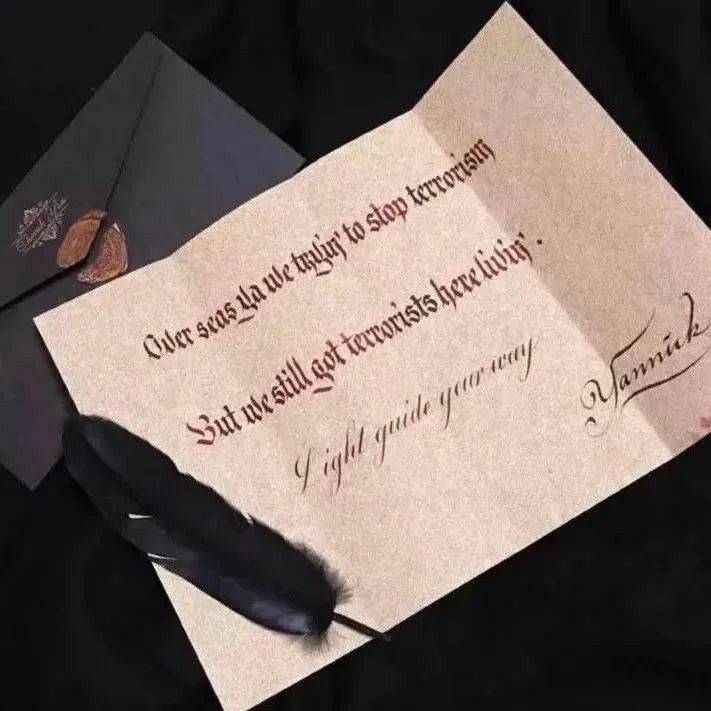 Over seas ya we tryin' to stop terrorism
But we still got terrorists here livin'.
Light guide your way
Yannick